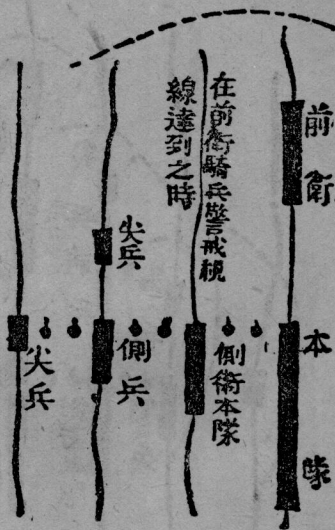 前衛
本隊
在前衛騎兵警戒視
線達到之時
側衛本隊
尖兵
側兵
尖兵